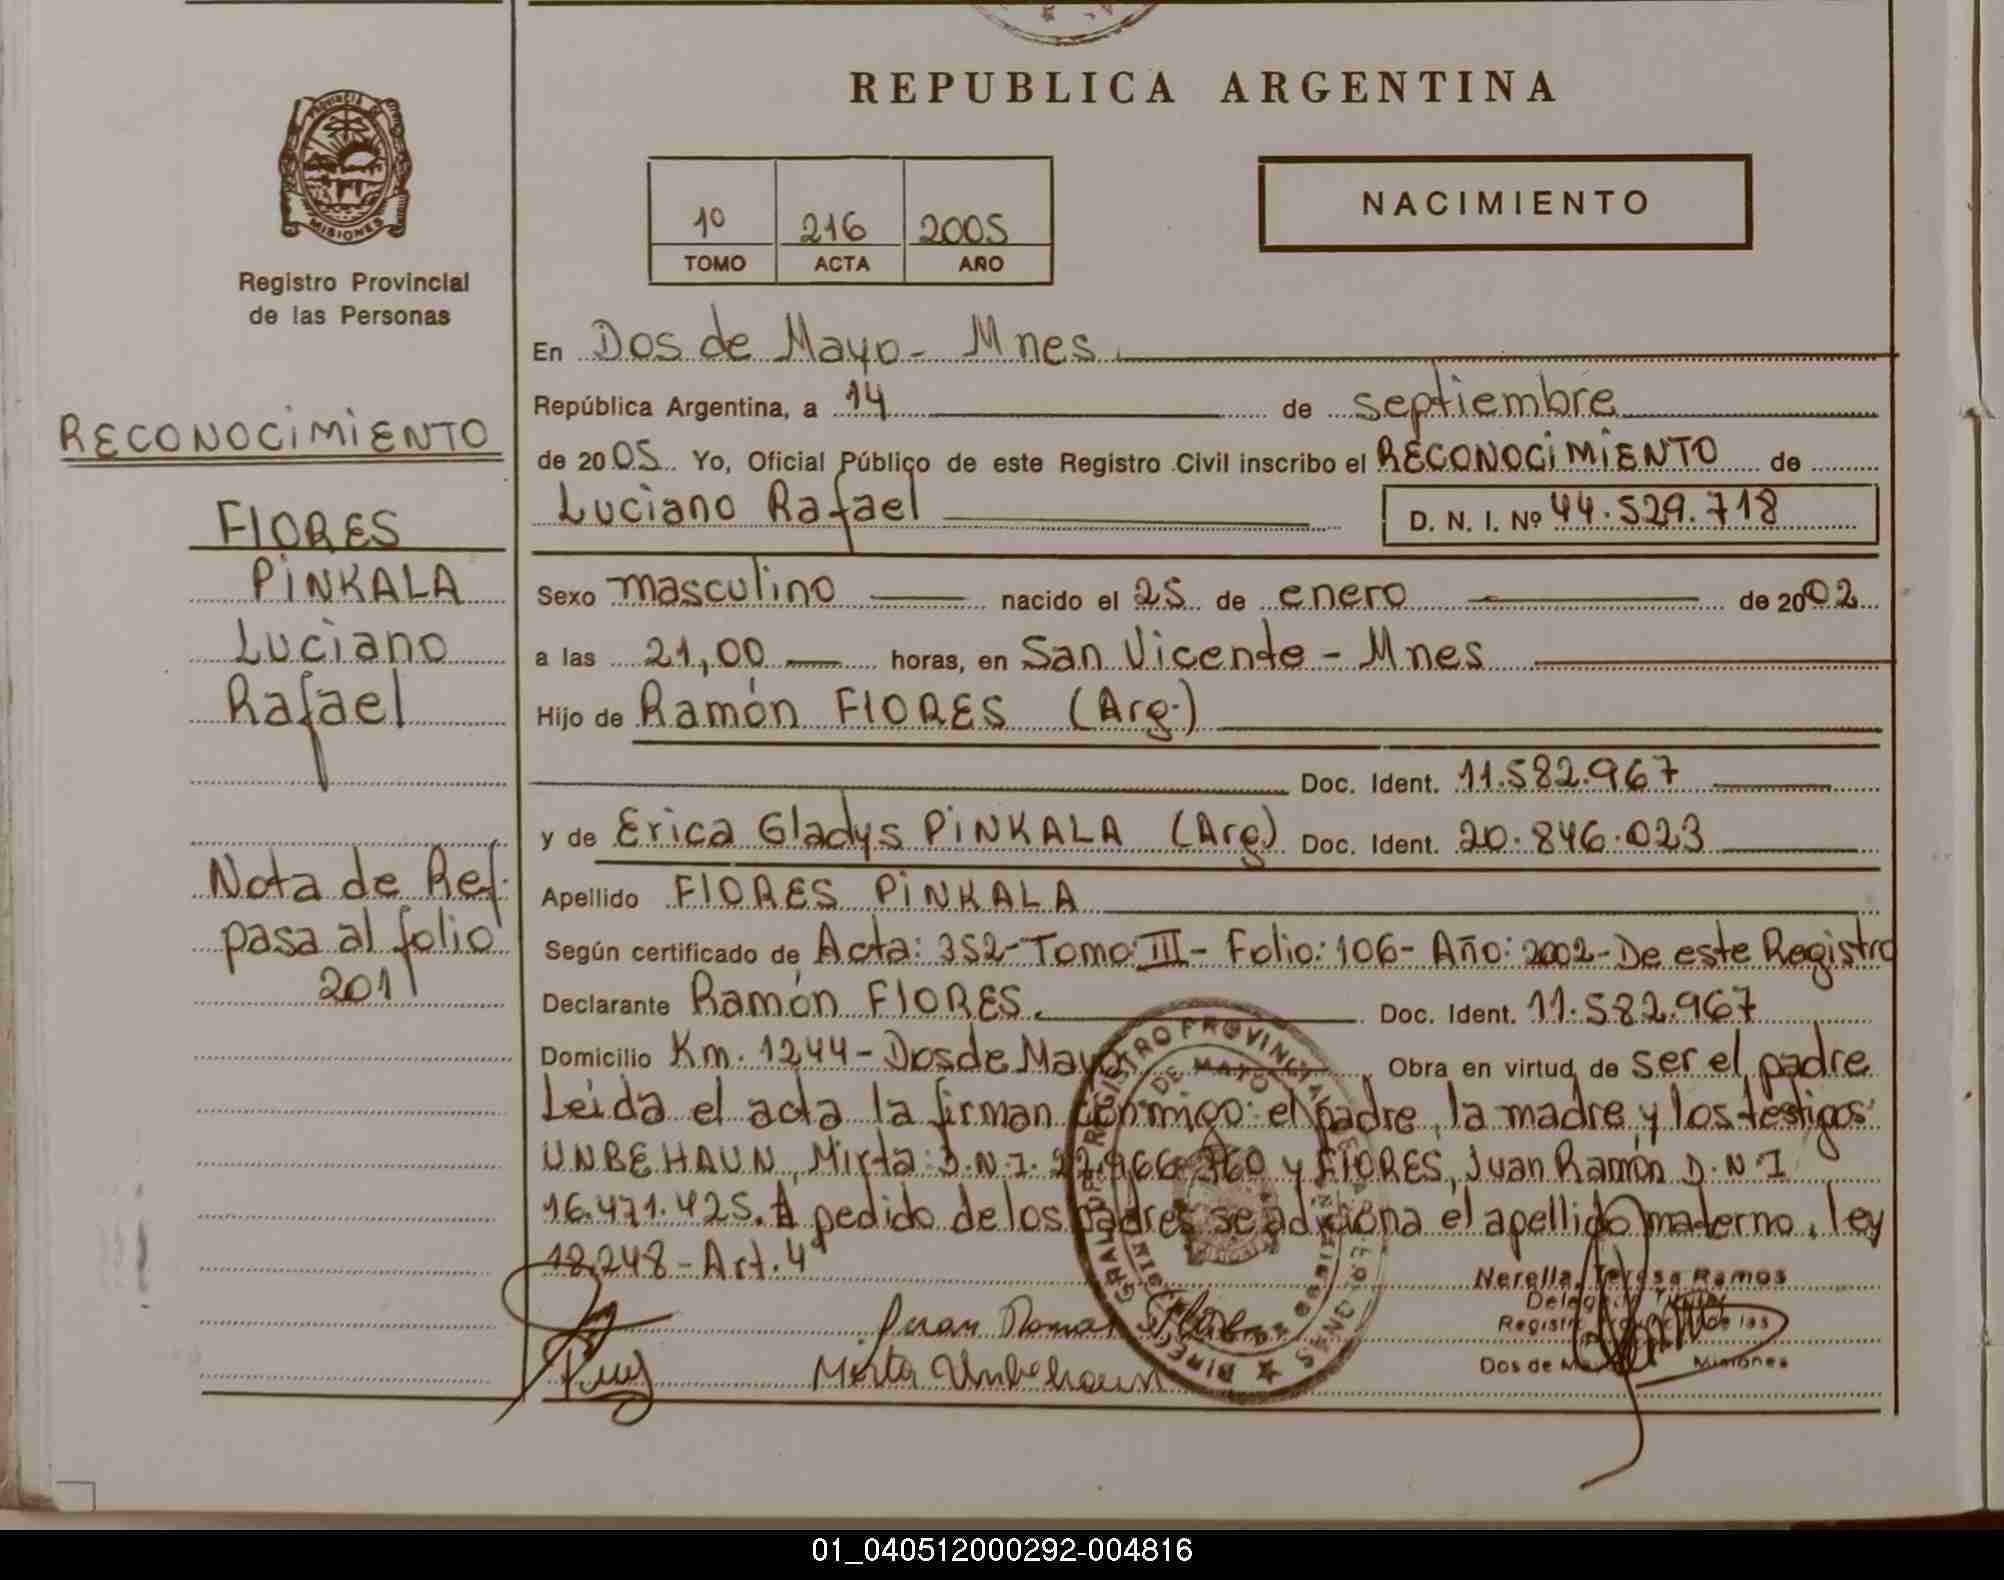 REPUBLICA ARGENTINA
PROVINCIA DE
MISIONES
Registro Provincial
de las Personas
10 216 2005
TOMO ACTA AÑO
NACIMIENTO
RECONOCIMIENTO
FLORES
PINKALA
Luciano
Rafael
Nota de Ref.
pasa al folio
201
En Dos de Mayo - Mnes.
República Argentina, a 14 de septiembre
de 2005 Yo, Oficial Público de este Registro Civil inscribo el RECONOCIMIENTO de
Luciano Rafael D. N. I. Nº 44.529.718
Sexo masculino nacido el 25 de enero de 2002
a las 21,00 horas, en San Vicente - Mnes
Hijo de Ramón FLORES (Arg.)
Doc. Ident. 11.582.967
y de Erica Gladys PINKALA (Arg) Doc. Ident. 20.846.023
Apellido FLORES PINKALA
Según certificado de Acta: 352 - Tomo: III - Folio: 106 - Año: 2002 - De este Registro
Declarante Ramón FLORES. Doc. Ident. 11.582.967
Domicilio Km. 1244 - Dos de Mayo Obra en virtud de ser el padre
Leida el acta la firman conmigo: el padre, la madre y los testigos:
UNBEHAUN, Mirta: D.N.I. y FLORES, Juan Ramón D.N.I
16.471.425. A pedido de los padres se adiciona el apellido materno, ley
18.248 - Art. 4º
Juan Ramon Flores
Mirta Unbehaun
Nerella Teresa Ramos
Dos de Mayo Misiones
01_040512000292-004816